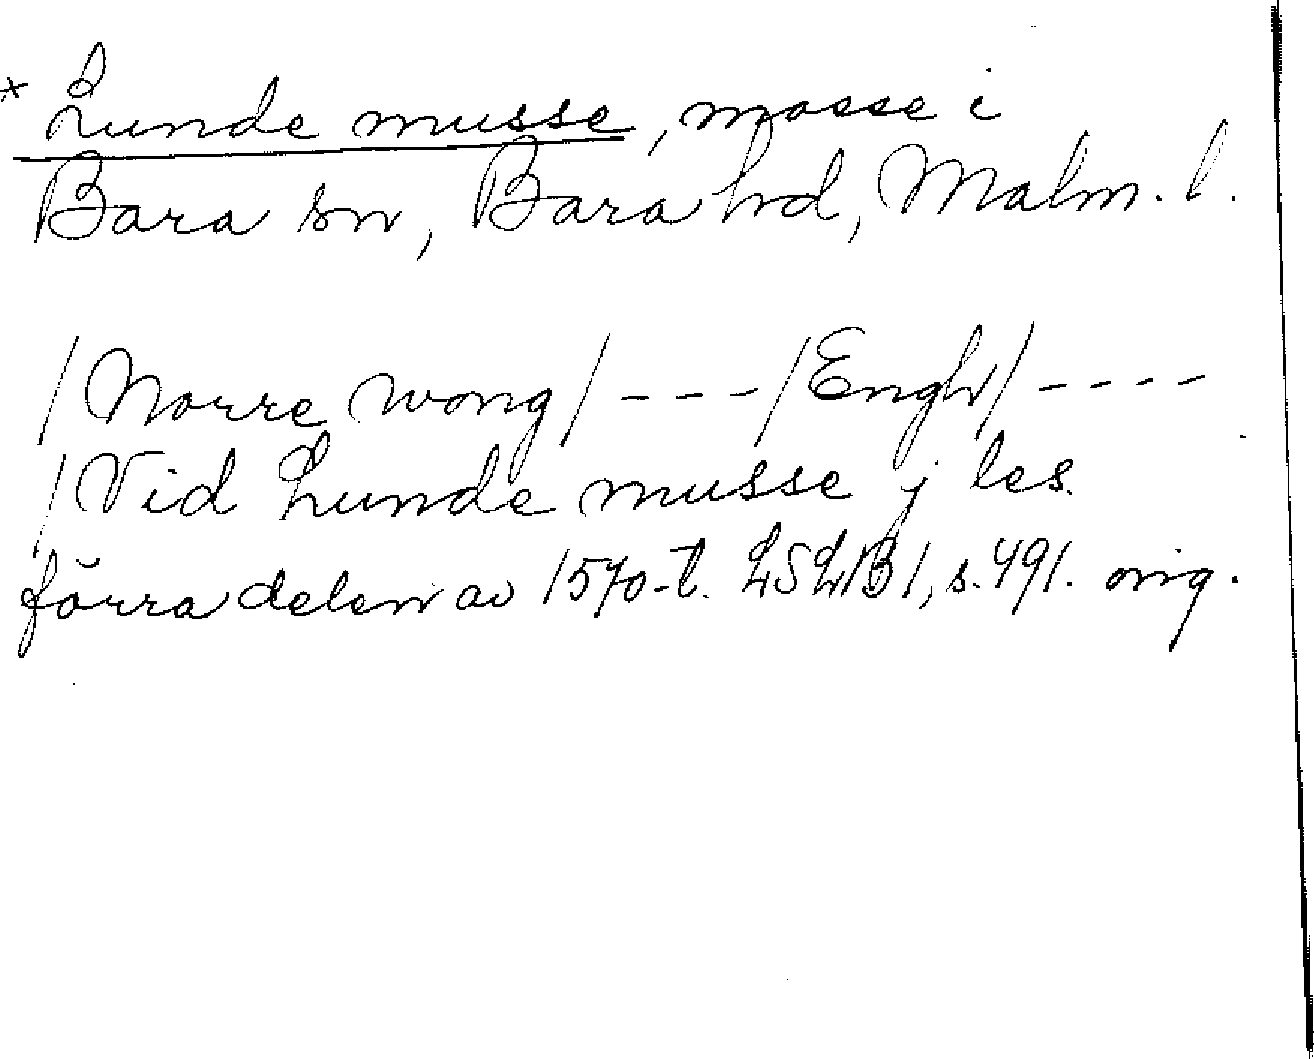 * Lunde musse, mosse i
Bara sn, Bara hd, Malm. l.
/Norre wong/ - - - /Engh/ - - - -
/Vid Lunde musse j les.
förra delen av 1570-t. LSLB1, s. 491. orig.